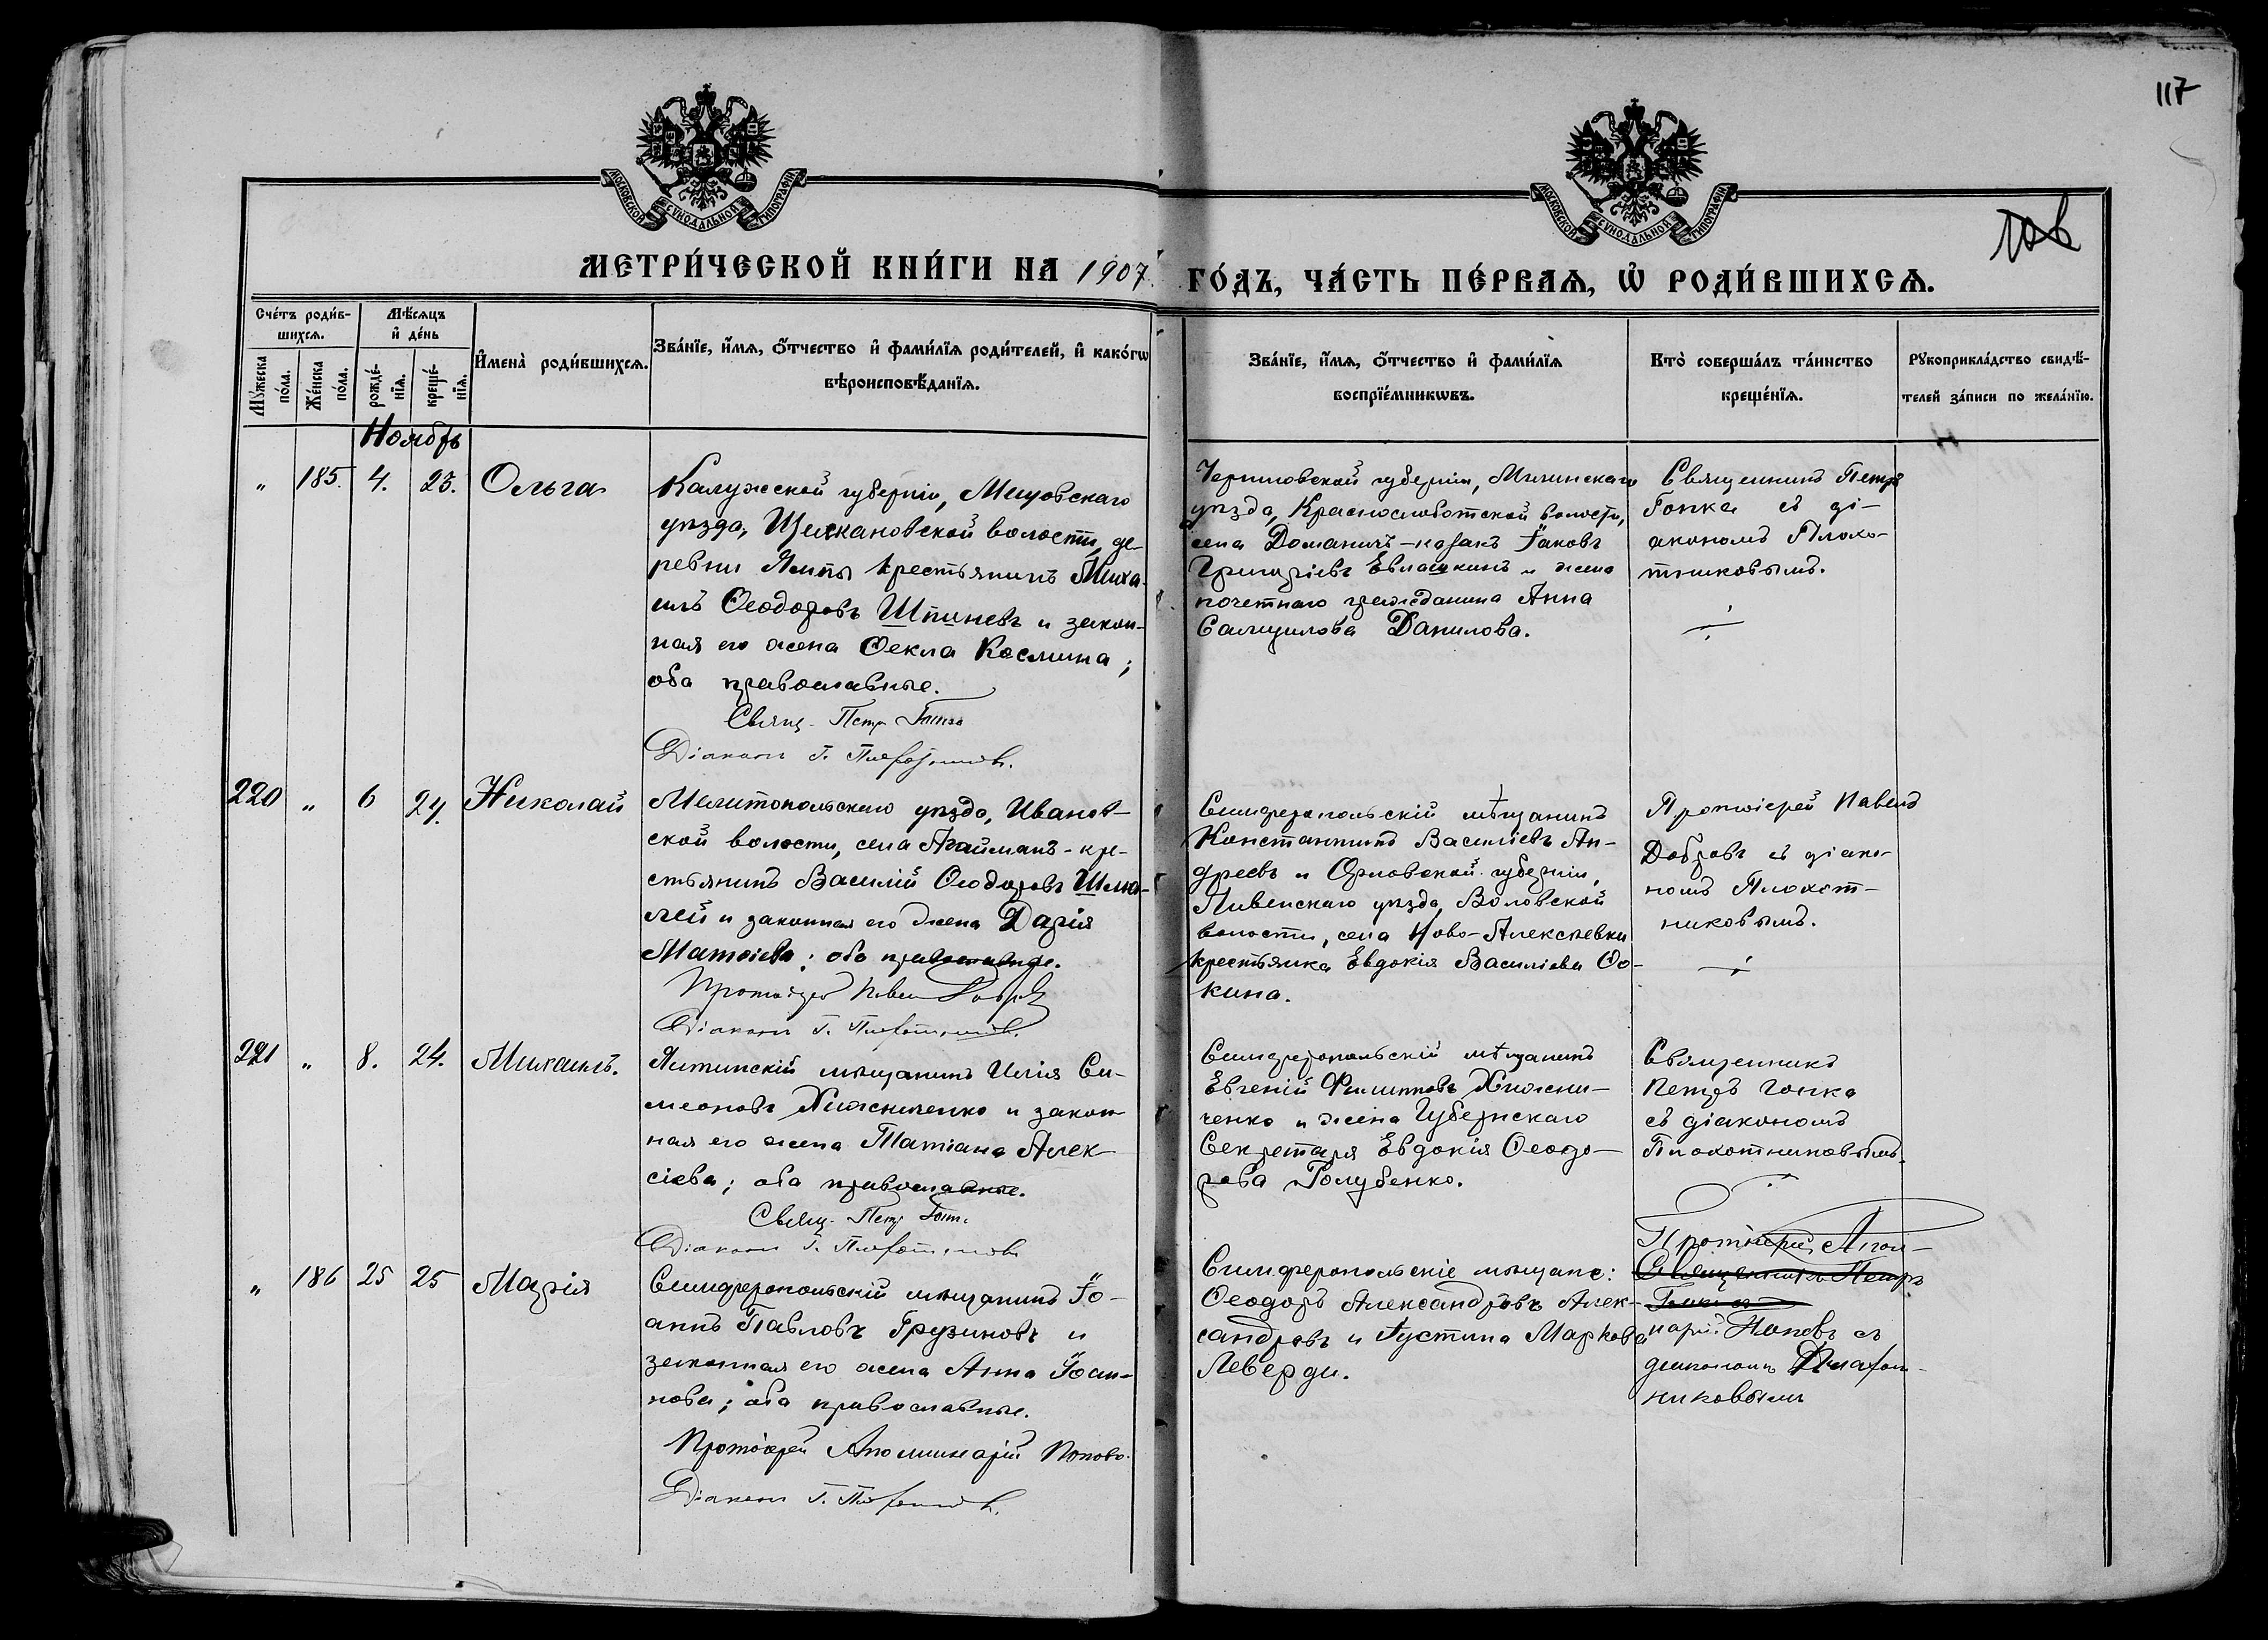 117
МОСКОВСКОЙ СѴНОДАЛЬНОЙ ТИПОГРАФІИ
МОСКОВСКОЙ СѴНОДАЛЬНОЙ ТИПОГРАФІИ
МЕТРИ́ЧЕСКОЙ КНИ́ГИ НА 1907.
ГО́ДЪ, ЧА́СТЬ ПЕ́РВАѦ, Ѽ РОДИ́ВШИХСѦ.
Сче́тъ роди́в-
шихсѧ.
Мꙋжеска
по́ла.
Же́нска
по́ла.
Мѣ́сѧцъ
и҆ де́нь
рожде́-
нїѧ.
креще́-
нїѧ.
И҆мена̀ роди́вшихсѧ.
Зва́нїе, и҆́мѧ, ѻ҆́тчество и҆ фами́лїѧ роди́телей, и҆ како́гѡ
вѣроисповѣ́данїѧ.
Зва́нїе, и҆́мѧ, ѻ҆́тчество и҆ фами́лїѧ
воспрїе́мникѡвъ.
Кто̀ соверша́лъ та́инство
креще́нїѧ.
Рꙋкоприкла́дство свидѣ́-
телей за́писи по жела́нїю.
Ноябрь
„ 185. 4. 23. Ольга
Калужской губерніи, Мещовскаго
уѣзда, волости, де-
ревни крестьянинъ Миха-
илъ Ѳеодоровъ Шпиневъ и закон-
ная его жена Ѳекла Космина;
оба православные.
Свящ. Петр Гопка
Діаконъ Г. Плохотниковъ.
Черниговской губерніи, Мглинскаго
уѣзда, Краснослободской волости,
села Доманичъ-козакъ Іаковъ
Григоріевъ Евлашкинъ и жена
почетнаго гражданина Анна
Самуилова Данилова.
Священникъ Петръ
Гопка съ ді-
акономъ Плохо-
тниковымъ.
220 „ 6 24. Николай
Мелитопольскаго уѣзда, Иванов-
ской волости, села Агайманъ-кре-
стьянинъ Василій Ѳеодоровъ Шма-
лей и законная его жена Дарія
Матѳіева; оба православные.
Протоіерей Павел Добров
Діаконъ Г. Плохотниковъ.
Симферопольскій мѣщанинъ
Константинъ Василіевъ Ан-
дреевъ и Орловской губерніи,
Ливенскаго уѣзда, Воловской
волости, села Ново-Алексѣевки
крестьянка Евдокія Василіева Ѳо-
кина.
Протоіерей Павелъ
Добровъ съ діако-
номъ Плохот-
никовымъ.
221 „ 8. 24. Михаилъ.
Ялтинскій мѣщанинъ Илія Си-
меоновъ Хижниченко и закон-
ная его жена Татіана Алек-
сіева; оба православные.
Свящ. Петр Гопка
Діаконъ Г. Плохотниковъ
Симферопольскій мѣщанинъ
Евгеній Филипповъ Хижни-
ченко и жена Губернскаго
Секретаря Евдокія Ѳеодо-
рова Голубенко.
Священникъ
Петръ Гопка
съ діакономъ
Плохотниковымъ.
„ 186 25 25 Марія
Симферопольскій мѣщанинъ Іо-
аннъ Павловъ Грузиновъ и
законная его жена Анна Іоан-
нова; оба православные.
Протоіерей Аполлинарій Поповъ.
Діаконъ Г. Плохотниковъ.
Симферопольскіе мѣщане:
Ѳеодоръ Александровъ Алек-
сандровъ и Іустина Маркова
Леверди.
Протоіерей Апол-
Священникъ Петръ
Гопка съ
нарій Поповъ съ
діакономъ Плохот-
никовымъ